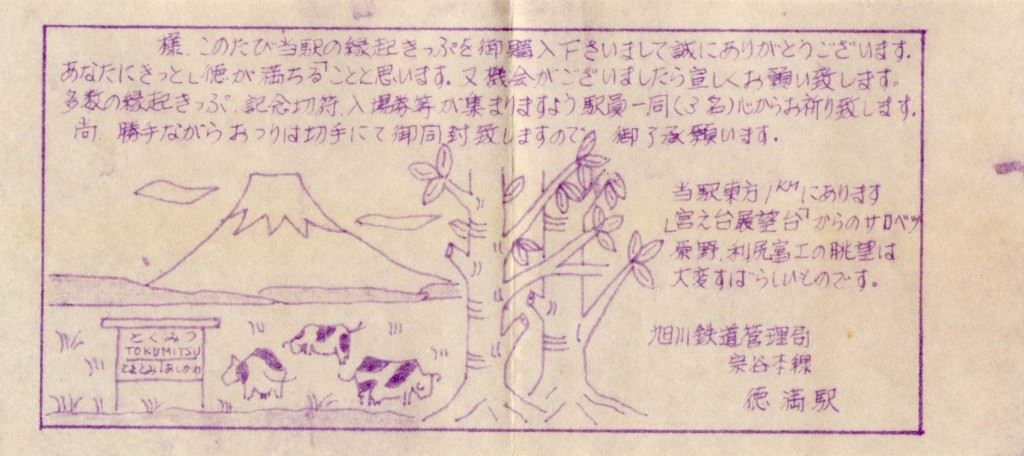 様、このたび当駅の縁起きっぷを御購入下さいまして誠にありがとうございます。
あなたにきっと「徳が満ちる」ことと思います。又機会がございましたら宜しくお願い致します。
多数の縁起きっぷ、記念切符、入場券等が集まりますよう駅員一同(3名)心からお祈り致します。
尚、勝手ながらおつりは切手にて御同封致しますので、御了承願います。
当駅東方1KMにあります
「宮之台展望台」からのサロベツ
原野、利尻富士の眺望は
大変すばらしいものです。
とくみつ
TOKUMITSU
とよとみ あしかわ
旭川鉄道管理局
宗谷本線
徳満駅